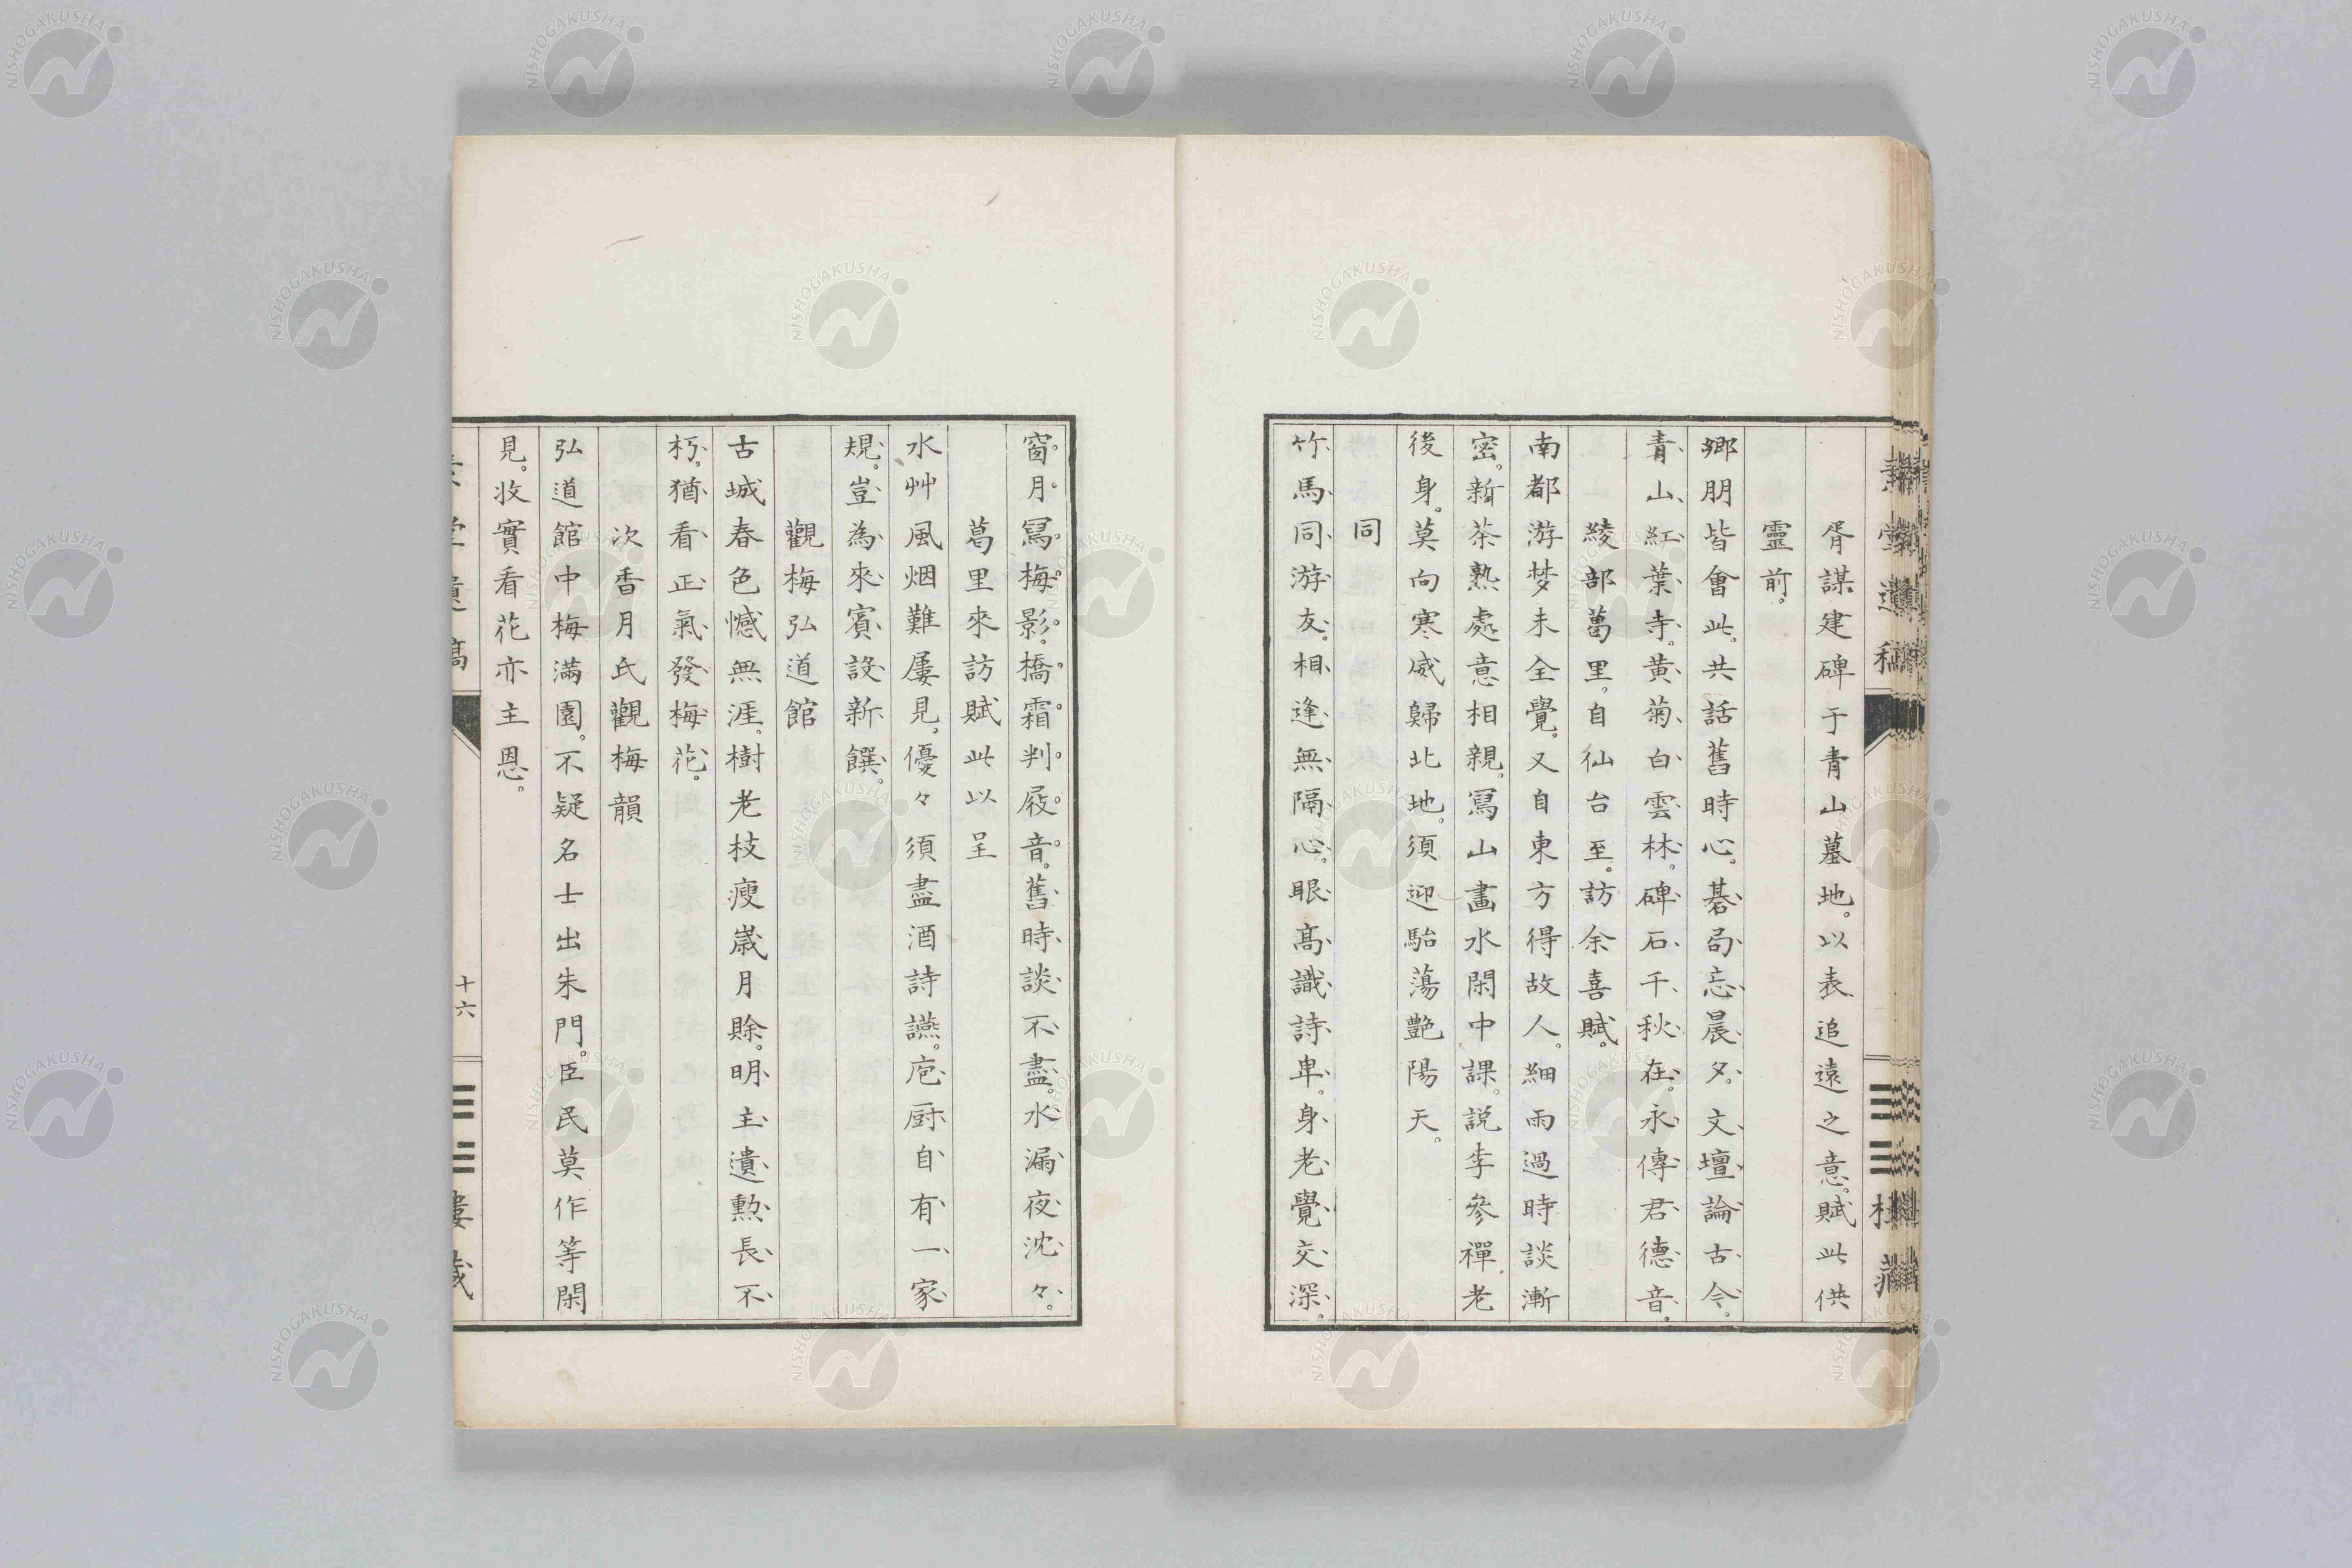 胥謀建碑于青山墓地。以表追遠之意。賦此供
靈前。
鄉朋皆會此。共話舊時心。碁局忘晨夕。文壇論古今。
青山紅葉寺。黄菊白雲林。碑石千秋在。永傳君德音。
綾部葛里。自仙台至。訪余喜賦。
南都游梦未全覺。又自東方得故人。細雨過時談漸
密。新茶熟處意相親。寫山畫水閑中課。説李參禪老
後身。莫向寒威歸北地。須迎駘蕩艶陽天。
同
竹馬同游友。相逢無隔心。眼高識詩卑。身老覺交深。
窗月寫梅影。橋霜判屐音。舊時談不盡。水漏夜沈々。
葛里來訪賦此以呈
水艸風烟難屢見。優々須盡酒詩讌。庖厨自有一家
規。豈為來賓設新饌。
觀梅弘道館
古城春色憾無涯。樹老枝瘦歳月賒。明主遺勲長不
朽。猶看正氣發梅花。
次香月氏觀梅韻
弘道館中梅滿園。不疑名士出朱門。臣民莫作等閑
見。收實看花亦主恩。
十六
NISHOGAKUSHA